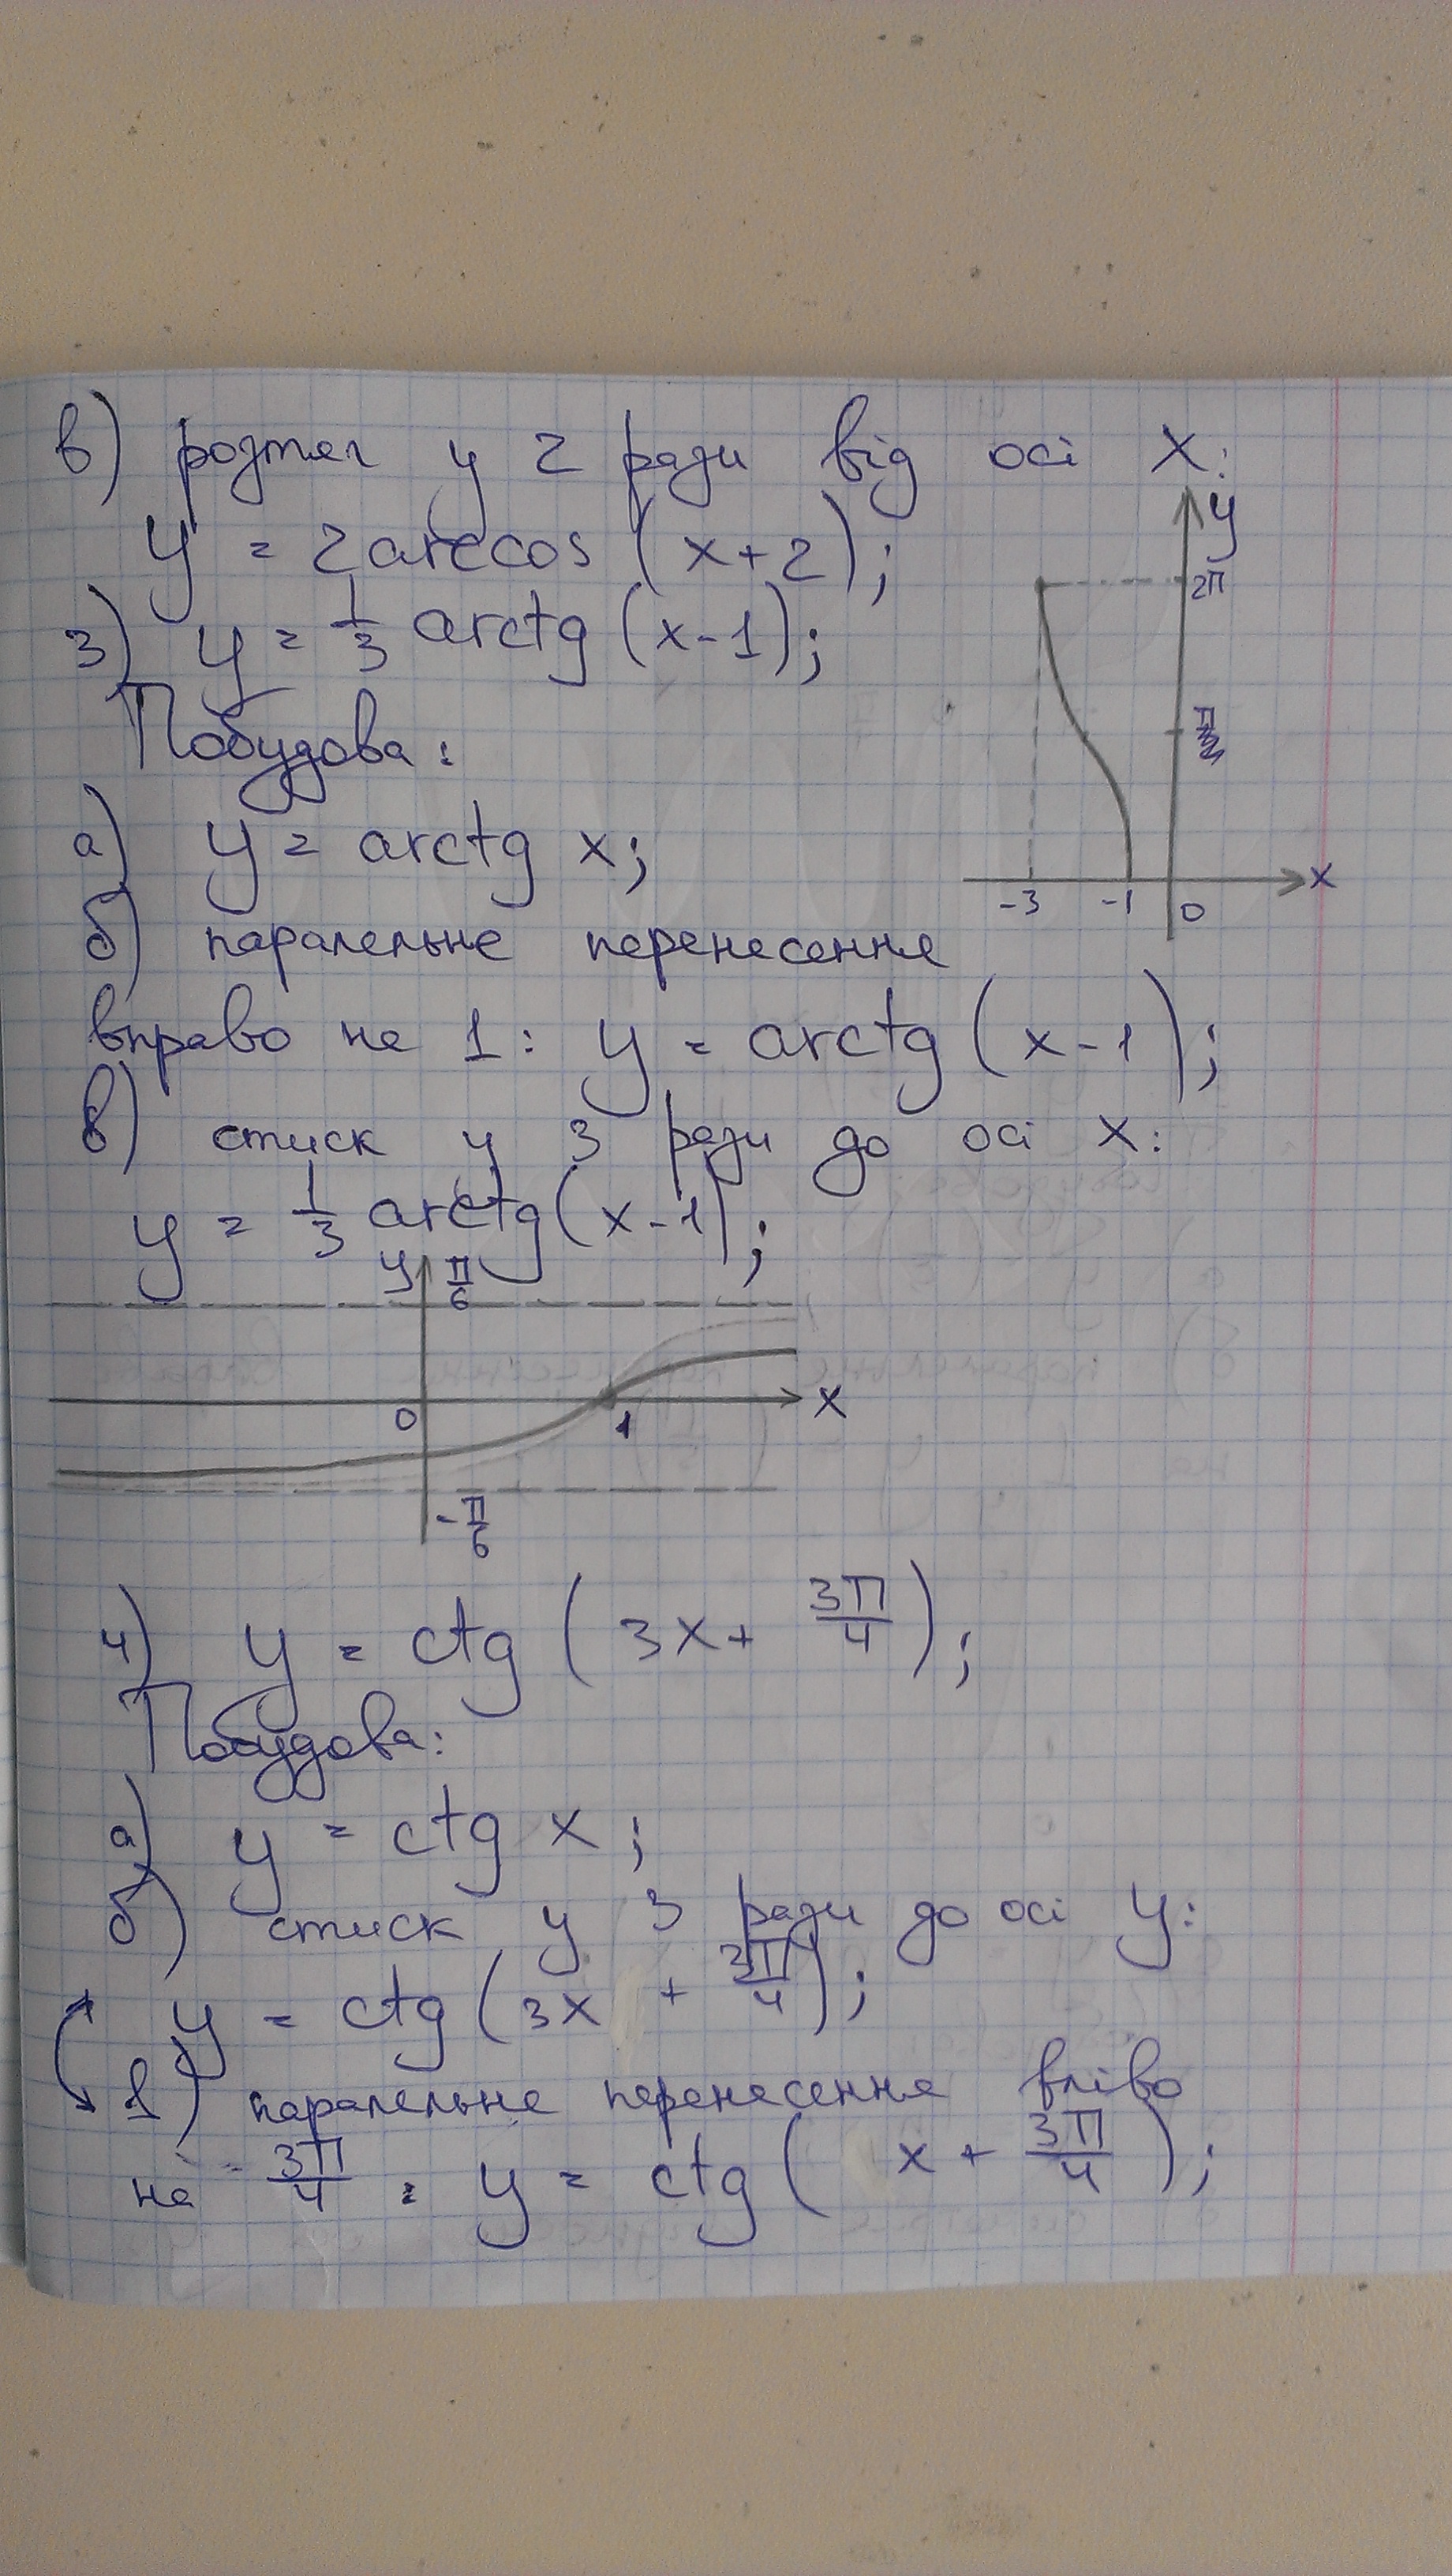 в) розтяг у 2 рази від осі x:
y = 2 arccos (x+2);
y
2π
π
-3 -1 0 x
3) y = 1/3 arctg (x-1);
Побудова:
а) y = arctg x;
б) паралельне перенесення
вправо на 1: y = arctg (x-1);
в) стиск у 3 рази до осі x:
y = 1/3 arctg(x-1);
y π/6
0 1 x
-π/6
4) y = ctg (3x+ 3π/4);
Побудова:
а) y = ctg x;
б) стиск у 3 рази до осі y:
y = ctg (3x + 3π/4);
в) паралельне перенесення вліво
на - 3π/4 : y = ctg ( x + 3π/4 );